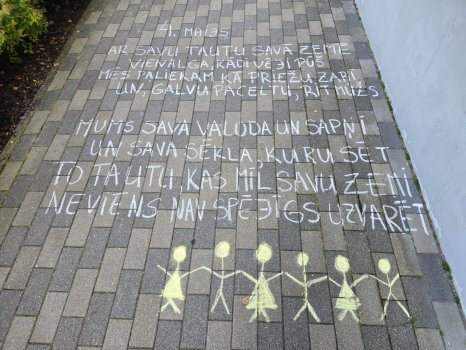 4. MAIJS
AR SAVU TAUTU SAVĀ ZEMĒ
VIENALGA, KĀDI VĒJI PŪŠ
MĒS PALIEKAM KĀ PRIEŽU ZARI,
UN, GALVU PACELTU, RIT MŪŽS
MUMS SAVA VALODA UN SAPŅI
UN SAVA SĒKLA, KURU SĒT
TO TAUTU, KAS MĪL SAVU ZEMI
NEVIENS NAV SPĒJĪGS UZVARĒT